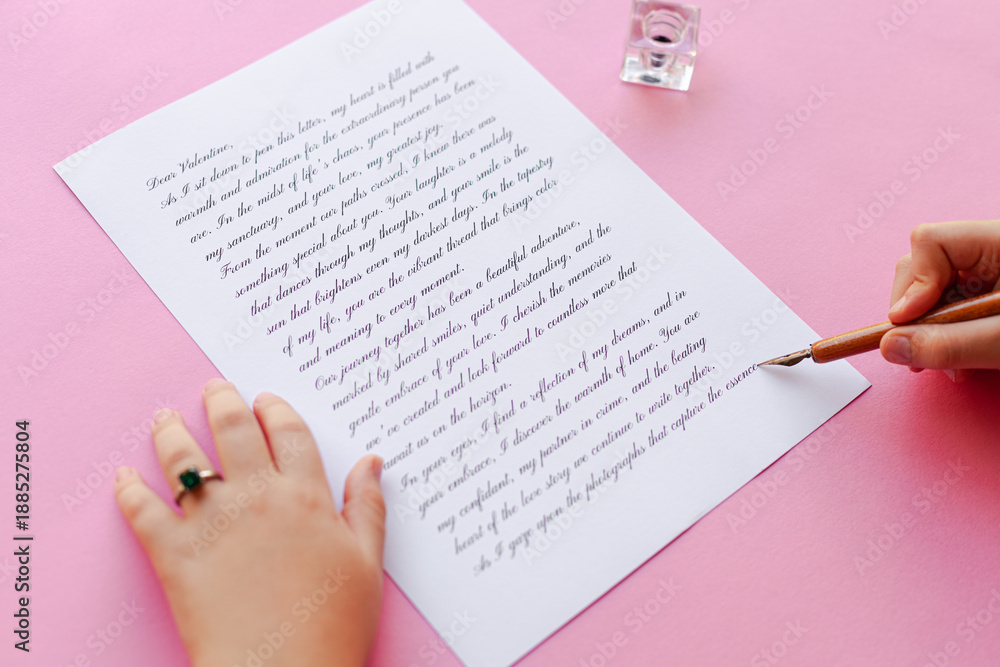 Dear Valentine,
As I sit down to pen this letter, my heart is filled with
warmth and admiration for the extraordinary person you
are. In the midst of life's chaos, your presence has been
my sanctuary, and your love, my greatest joy.
From the moment our paths crossed, I knew there was
something special about you. Your laughter is a melody
that dances through my thoughts, and your smile is the
sun that brightens even my darkest days. In the tapestry
of my life, you are the vibrant thread that brings color
and meaning to every moment.
Our journey together has been a beautiful adventure,
marked by shared smiles, quiet understanding, and the
gentle embrace of your love. I cherish the memories
we've created and look forward to countless more that
await us on the horizon.
In your eyes, I find a reflection of my dreams, and in
your embrace, I discover the warmth of home. You are
my confidant, my partner in crime, and the beating
heart of the love story we continue to write together.
As I gaze upon the photographs that capture the essence
Adobe Stock | #1885275804
Adobe Stock